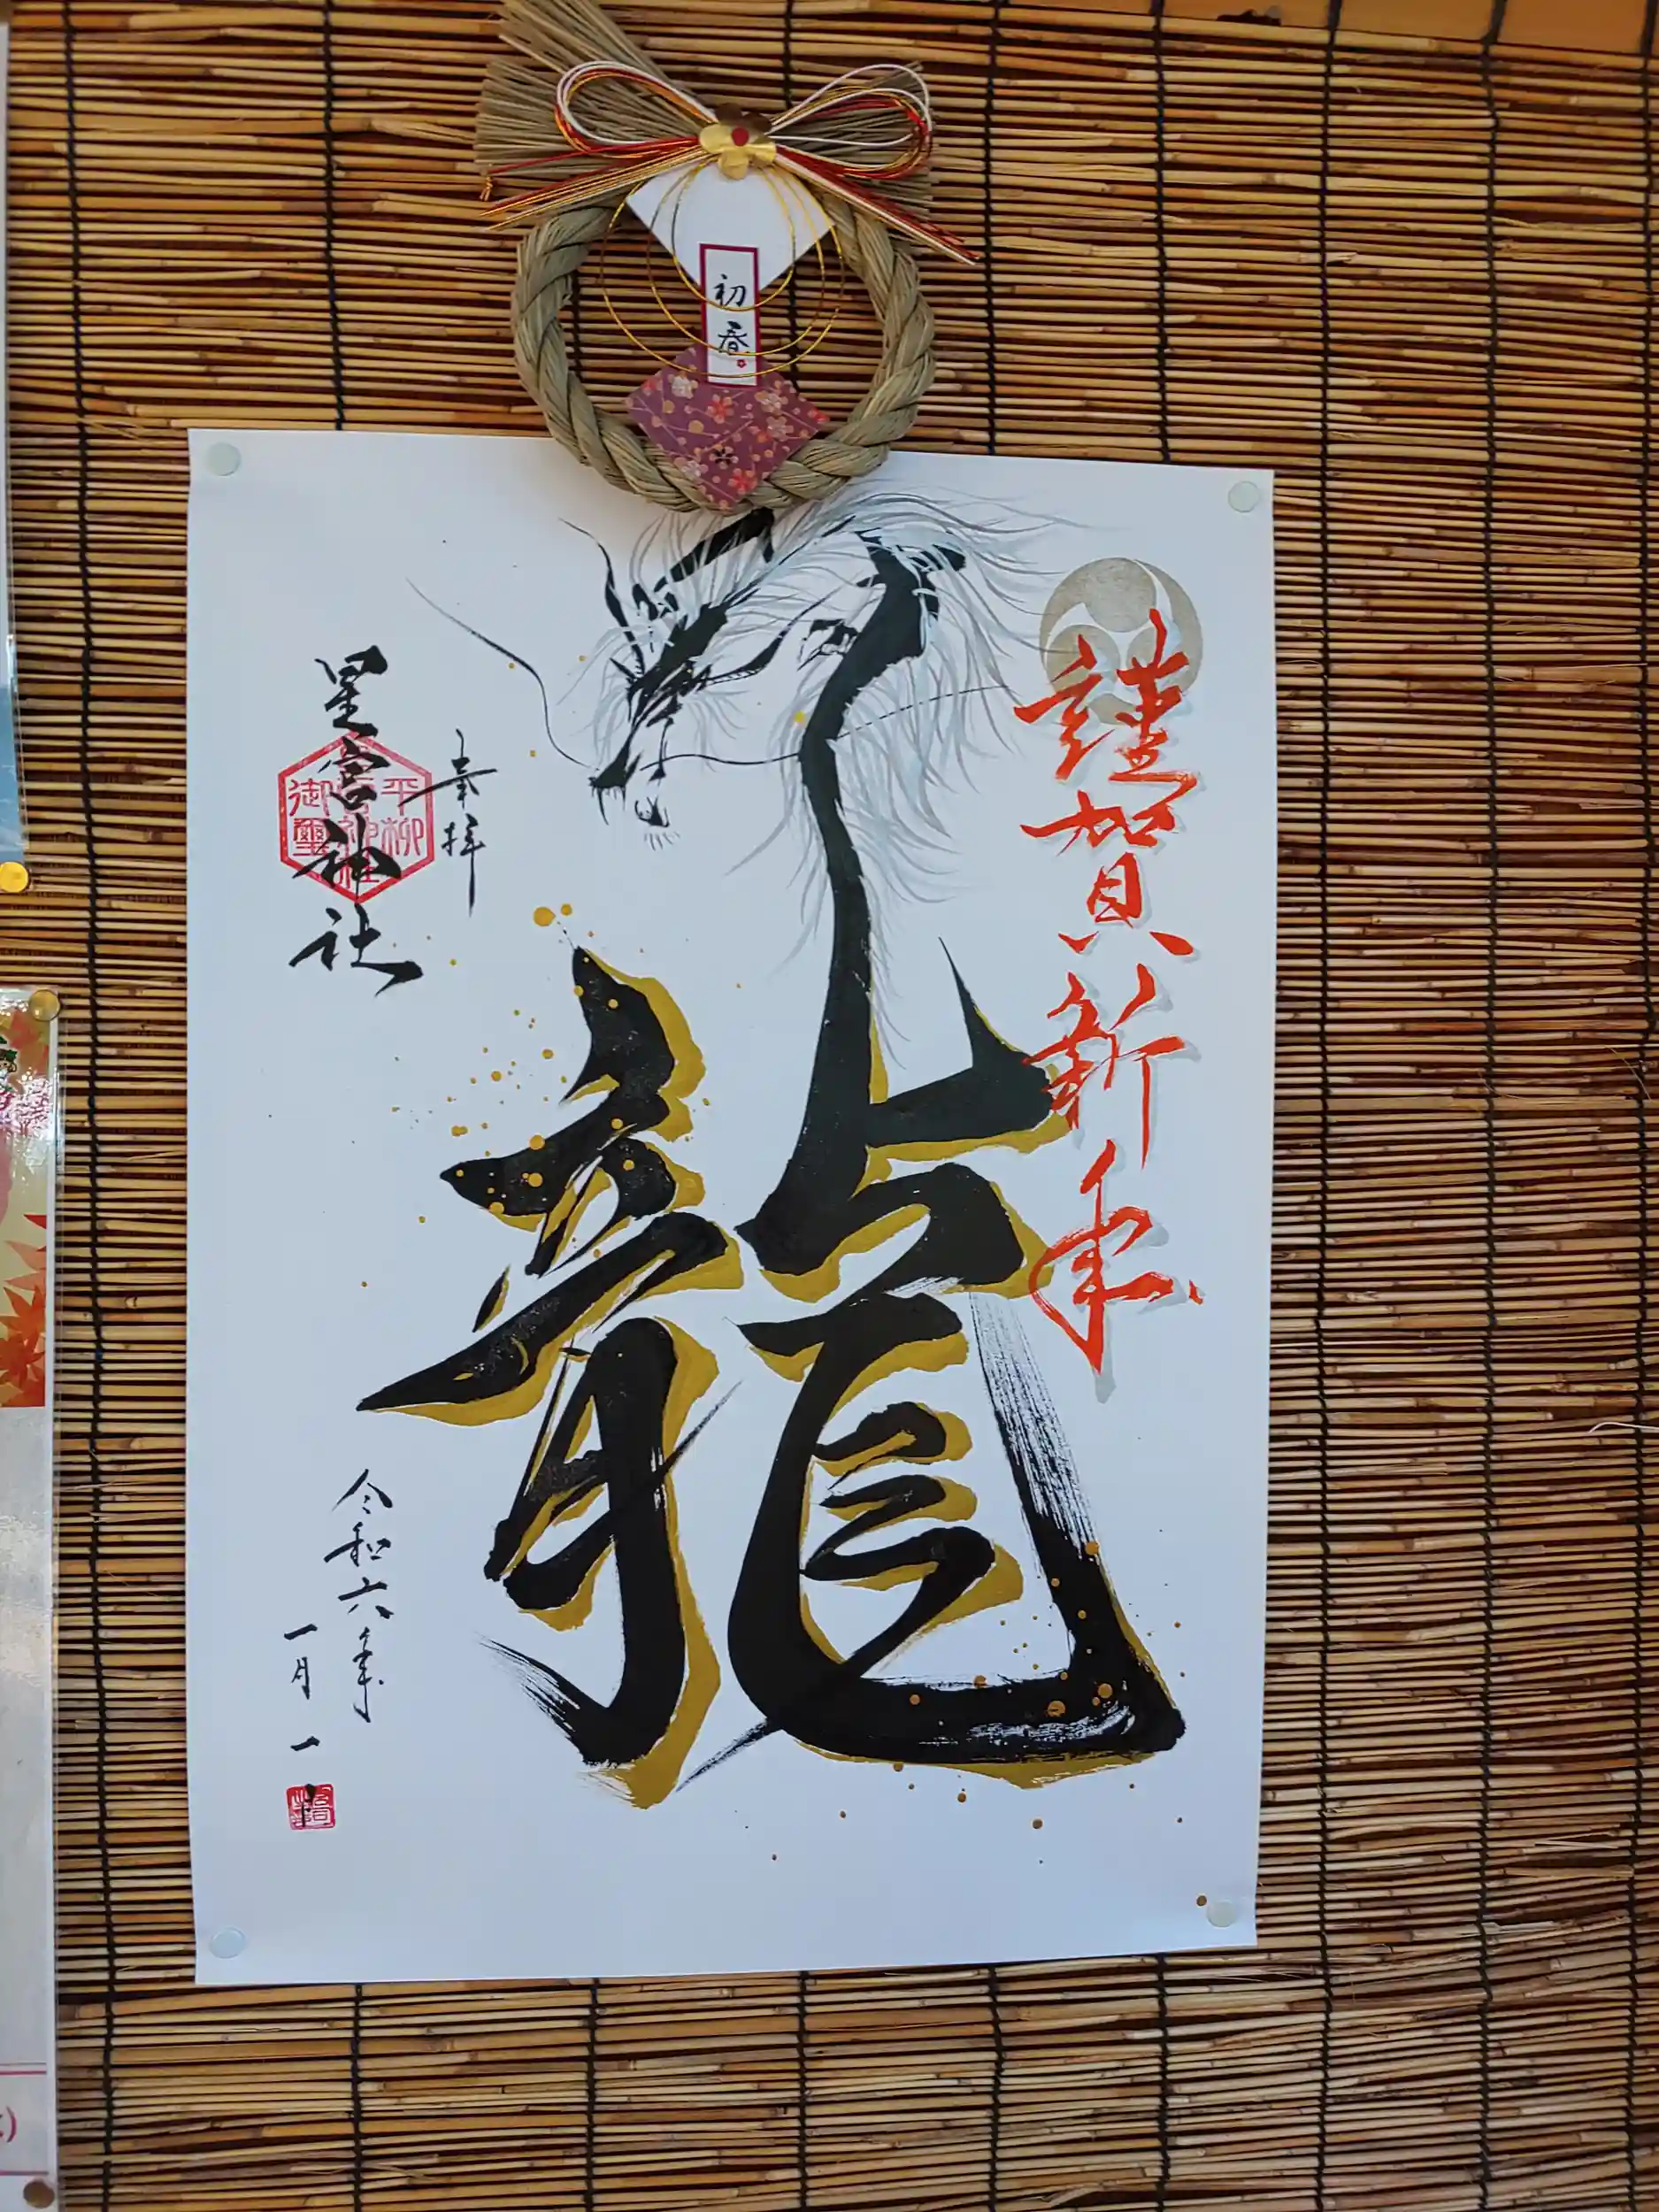 初春
謹賀新年
龍
奉拝
星宮神社
平柳
御璽
令和六年
一月一